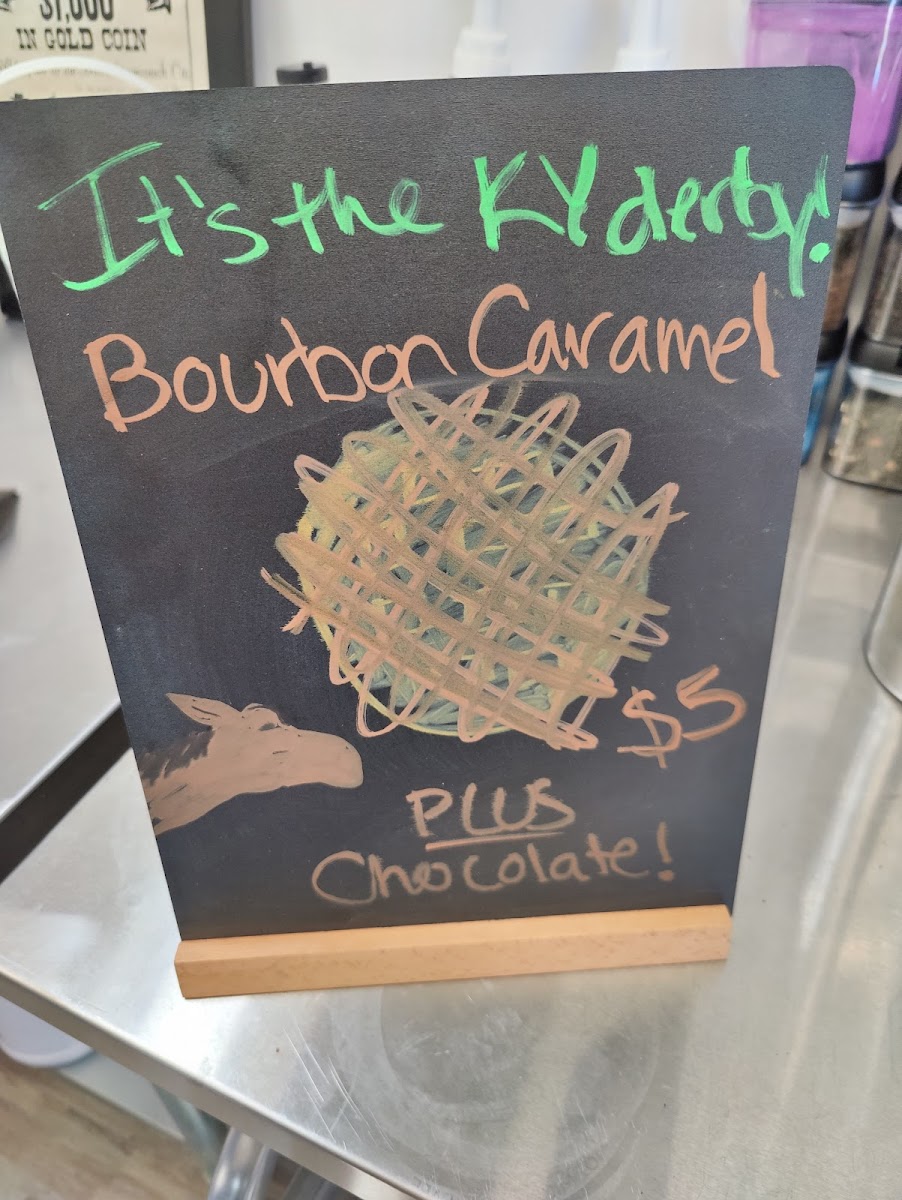 $1,000
IN GOLD COIN
It's the KY derby!
Bourbon Caramel
$5
PLUS
Chocolate!